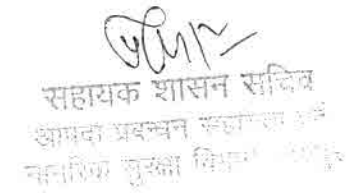 सहायक शासन सचिव
आपदा प्रबन्धन सहायता एवं
नागरिक सुरक्षा विभाग